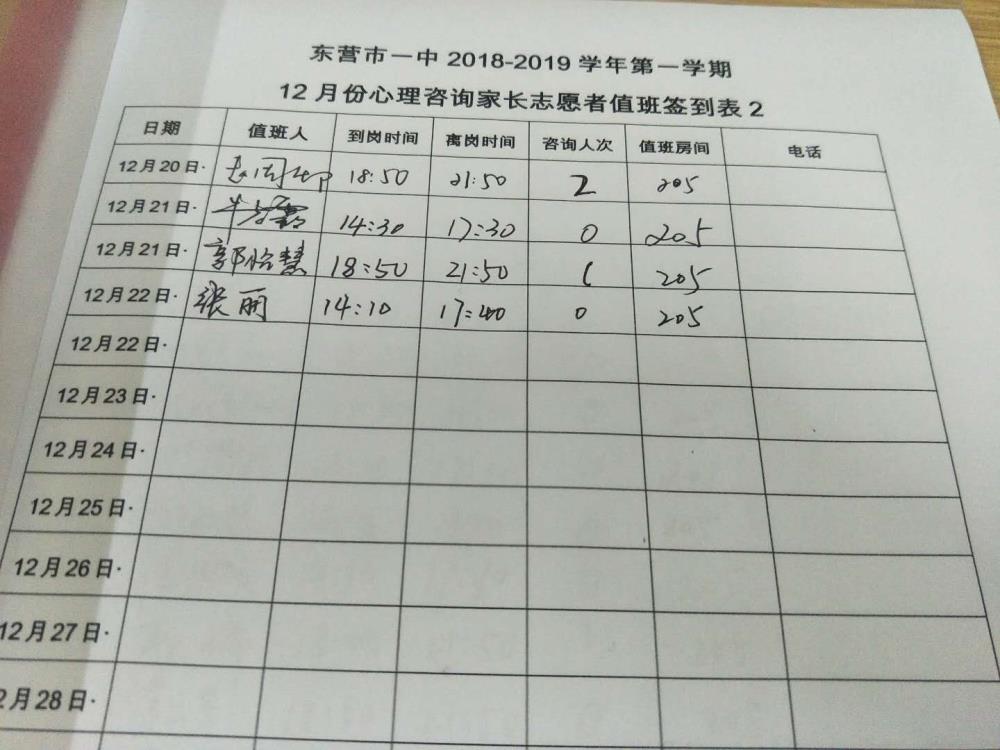 东营市一中 2018-2019 学年第一学期
12 月份心理咨询家长志愿者值班签到表 2
日期 值班人 到岗时间 离岗时间 咨询人次 值班房间 电话
12月20日· 18:50 21:50 2 205
12月21日· 14:30 17:30 0 205
12月21日· 郭怡慧 18:50 21:50 1 205
12月22日· 张丽 14:10 17:40 0 205
12月22日·
12月23日·
12月24日·
12月25日·
12月26日·
12月27日·
2月28日·